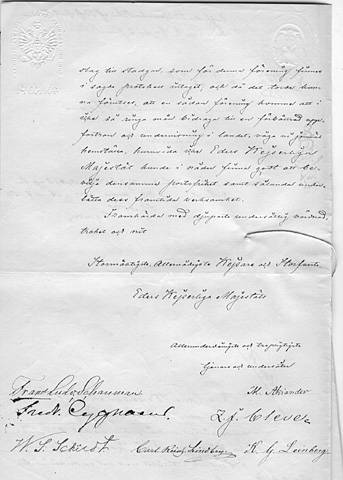 slag till stadgar, som för denna förening finnes
i sagde protokoll intaget, och då det torde kun-
na förutses, att en sådan förening komme att i
icke så ringa mån bidraga till en förbättrad upp-
fostran och undervisning i landet, våga vi jemväl
hemställa, huruvida icke Eders Kejserliga
Majestät kunde i nåder finna godt att be-
vilja densamma portofrihet samt sålunda under-
lätta dess framtida verksamhet.
Framhärda med djupaste undersåtlig vördnad,
trohet och nit
Stormägtigste, Allernådigste Kejsare och Storfurste,
Eders Kejserliga Majestäts
Allerunderdånigste och tropligtigste
tjenare och undersåter
Frans Ludv. Schauman
M. Akiander
Fredr. Cygnaeus.
Z. J. Cleve
W. S. Schildt
Carl Lindberg
K. G. Leinberg.